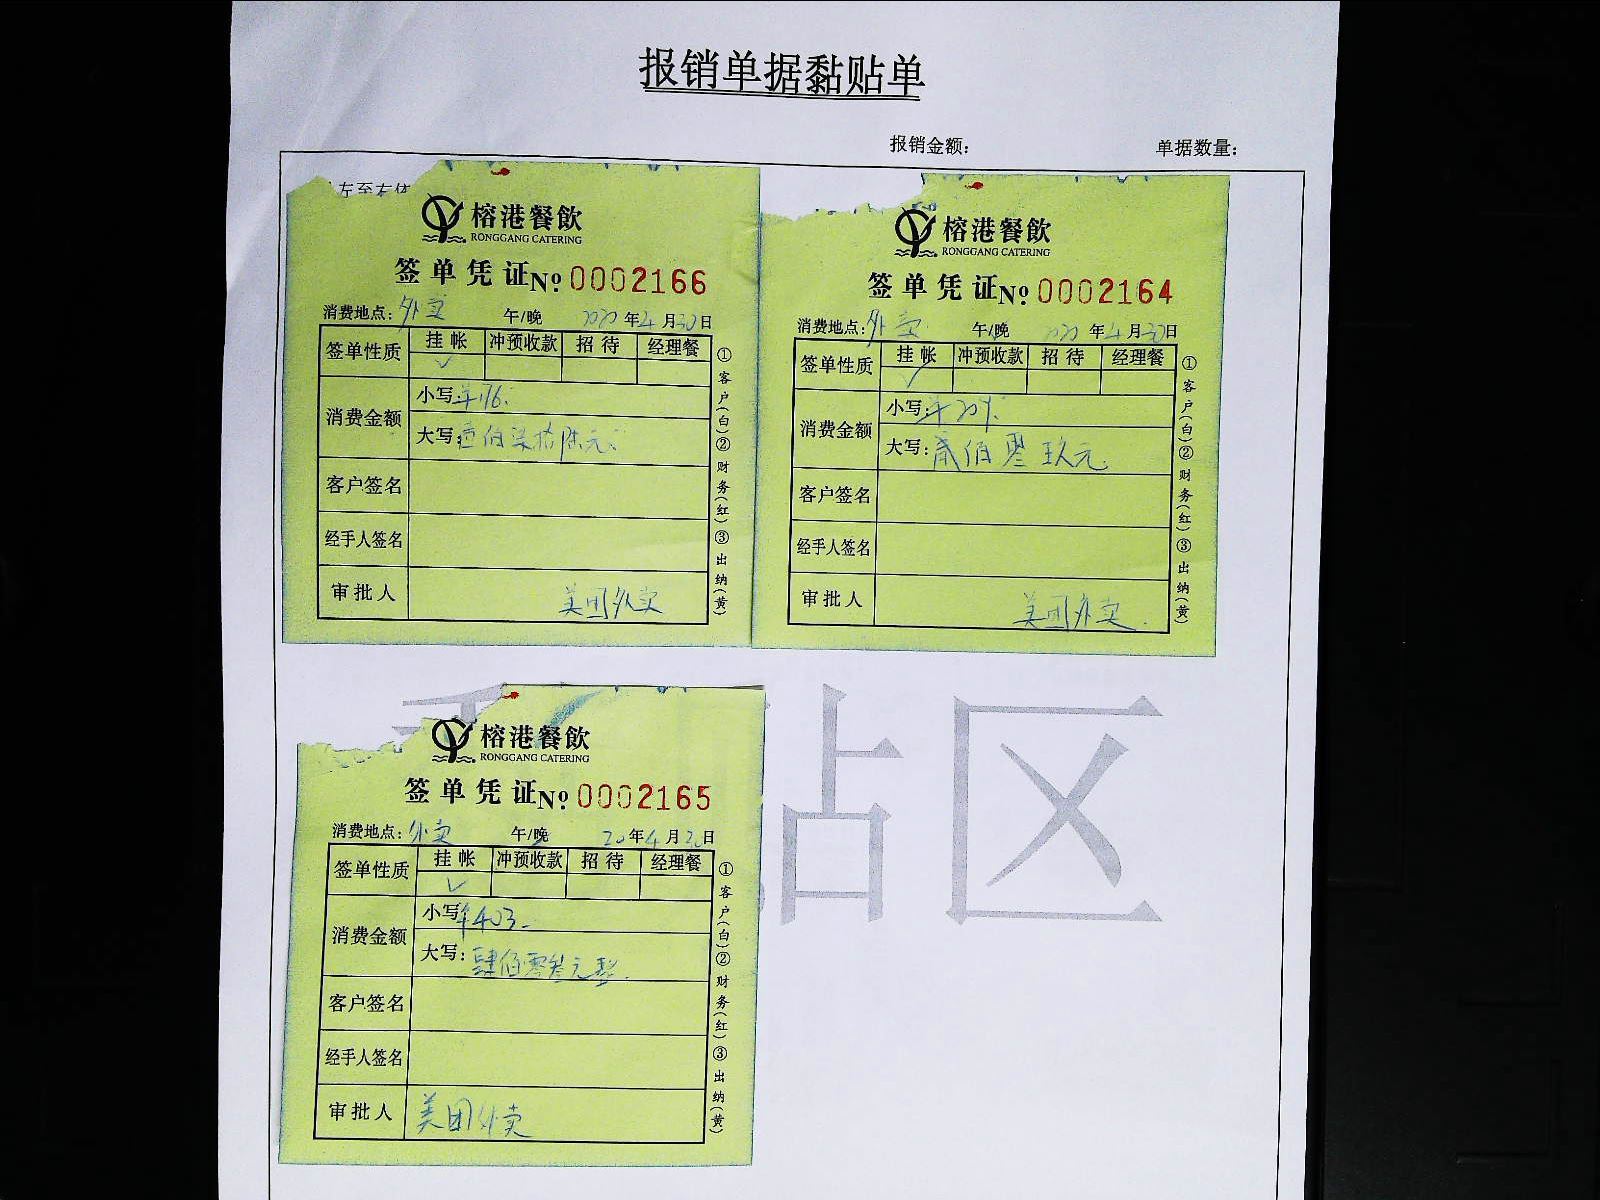 报销单据黏贴单
报销金额： 单据数量：
左至右依
榕港餐飲
RONGGANG CATERING
签单凭证 No 0002166
消费地点：外卖 午/晚 2020年4月30日
签单性质 挂帐 冲预收款 招待 经理餐
✓
消费金额 小写：¥176.
大写：壹佰柒拾陆元.
客户签名
经手人签名
审批人 美团外卖
①客户(白)②财务(红)③出纳(黄)
榕港餐飲
RONGGANG CATERING
签单凭证 No 0002164
消费地点：外卖 午/晚 2020年4月30日
签单性质 挂帐 冲预收款 招待 经理餐
✓
消费金额 小写：¥209.
大写：贰佰零玖元.
客户签名
经手人签名
审批人 美团外卖.
①客户(白)②财务(红)③出纳(黄)
榕港餐飲
RONGGANG CATERING
签单凭证 No 0002165
消费地点：外卖 午/晚 20年4月30日
签单性质 挂帐 冲预收款 招待 经理餐
✓
消费金额 小写：¥403.
大写：肆佰零叁元整.
客户签名
经手人签名
审批人 美团外卖
①客户(白)②财务(红)③出纳(黄)
贴区